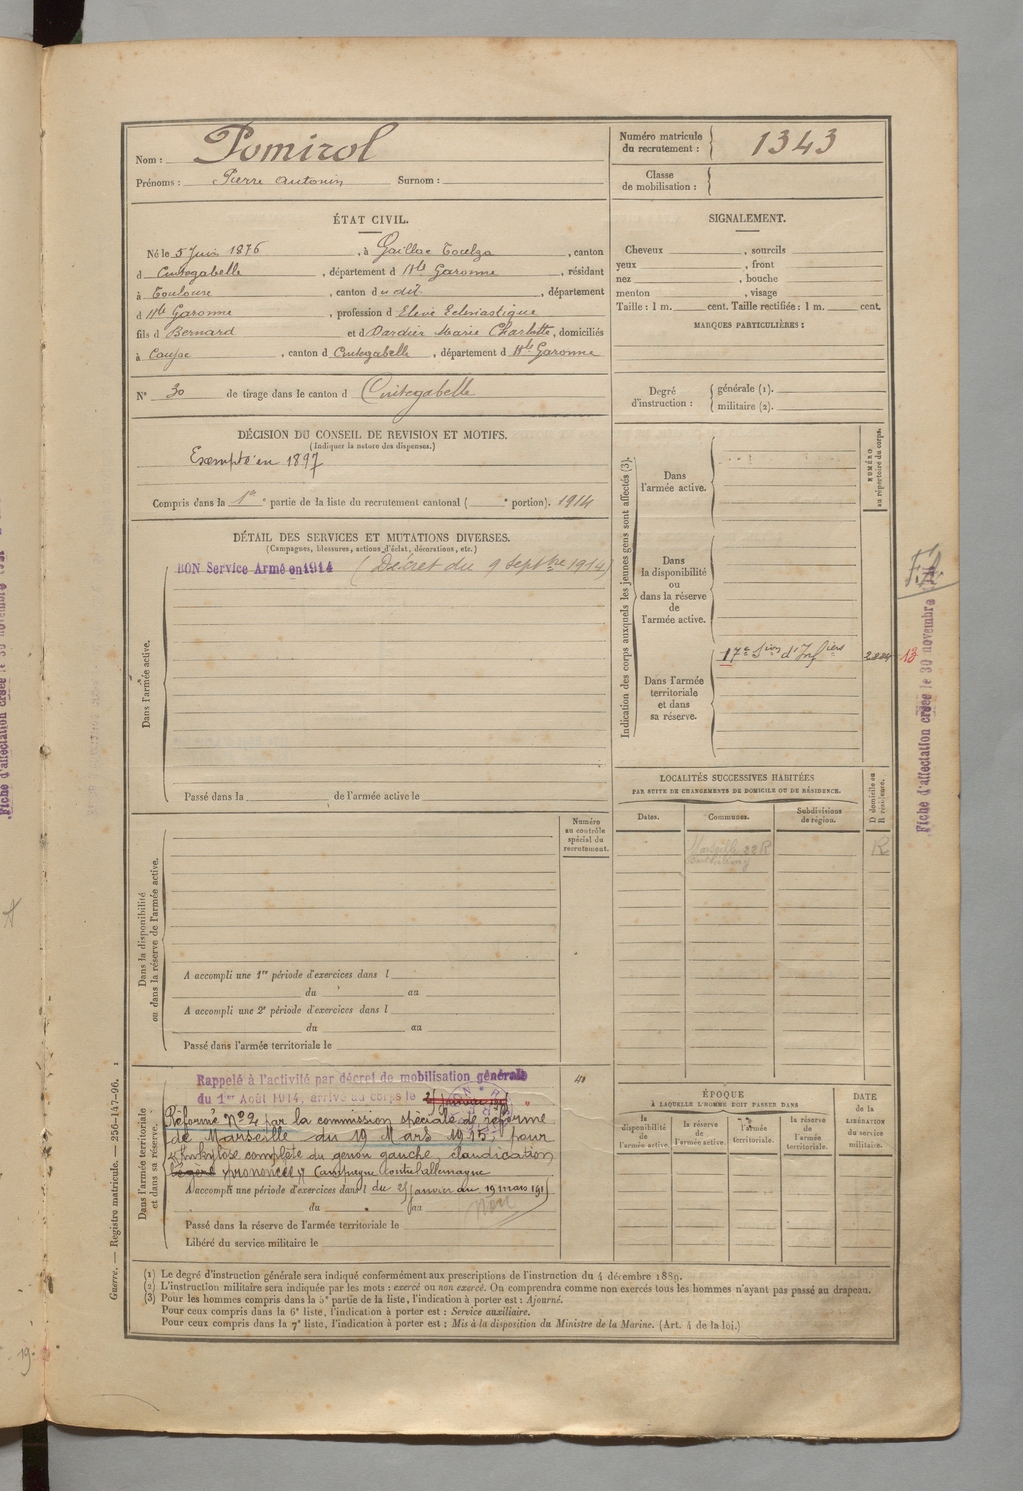 Nom : Pomirol
Prénoms : Pierre Antonin Surnom :
Numéro matricule
du recrutement : 1343
Classe
de mobilisation :
ÉTAT CIVIL.
Né le 5 Juin 1876, à Gaillac Toulza, canton
d Cintegabelle, département d Hte Garonne, résidant
à Toulouse, canton du dit, département
d Hte Garonne, profession d Elève Eclésiastique
fils d Bernard et d Dardier Marie Charlotte, domiciliés
à Caujac, canton d Cintegabelle, département d Hte Garonne
N° 30 de tirage dans le canton d Cintegabelle
SIGNALEMENT.
Cheveux , sourcils
yeux , front
nez , bouche
menton , visage
Taille : 1 m. cent. Taille rectifiée : 1 m. cent.
MARQUES PARTICULIÈRES :
Degré
d'instruction :
générale (1).
militaire (2).
DÉCISION DU CONSEIL DE REVISION ET MOTIFS.
(Indiquer la nature des dispenses.)
Exempté en 1897
Compris dans la 1re partie de la liste du recrutement cantonal ( e portion). 1914
DÉTAIL DES SERVICES ET MUTATIONS DIVERSES.
(Campagnes, blessures, actions d'éclat, décorations, etc.)
BON Service Armé en 1914 (Décret du 9 septbre 1914)
Dans l'armée active.
Passé dans la de l'armée active le
Indication des corps auxquels les jeunes gens sont affectés (3).
NUMÉRO
au répertoire du corps.
Dans
l'armée active.
Dans
la disponibilité
ou
dans la réserve
de
l'armée active.
Dans l'armée
territoriale
et dans
sa réserve.
17e Sion d'Infiers 2224 13
Fiche d'affectation créée le 30 novembre
LOCALITÉS SUCCESSIVES HABITÉES
PAR SUITE DE CHANGEMENTS DE DOMICILE OU DE RÉSIDENCE.
D domicile ou
R résidence.
Dates.
Communes.
Subdivisions
de région.
Marseille 22 R R
Numéro
au contrôle
spécial du
recrutement.
Dans la disponibilité
ou dans la réserve de l'armée active.
A accompli une 1re période d'exercices dans l
du au
A accompli une 2e période d'exercices dans l
du au
Passé dans l'armée territoriale le
Dans l'armée territoriale
et dans sa réserve.
Rappelé à l'activité par décret de mobilisation générale
du 1er Août 1914, arrivé au corps le
Réformé N° 2 par la commission spéciale de réforme
de Marseille du 19 Mars 1915 pour
Ankylose complète du genou gauche, claudication
légère prononcée Campagne contre l'allemagne
A accompli une période d'exercices dans l du 25 janvier au 19 mars 1915
du au
Passé dans la réserve de l'armée territoriale le
Libéré du service militaire le
ÉPOQUE
À LAQUELLE L'HOMME DOIT PASSER DANS
la
disponibilité
de
l'armée active.
la réserve
de
l'armée active.
l'armée
territoriale.
la réserve
de
l'armée
territoriale.
DATE
de la
LIBÉRATION
du service
militaire.
(1) Le degré d'instruction générale sera indiqué conformément aux prescriptions de l'instruction du 4 décembre 1889.
(2) L'instruction militaire sera indiquée par les mots : exercé ou non exercé. On comprendra comme non exercés tous les hommes n'ayant pas passé au drapeau.
(3) Pour les hommes compris dans la 5e partie de la liste, l'indication à porter est : Ajourné.
Pour ceux compris dans la 6e liste, l'indication à porter est : Service auxiliaire.
Pour ceux compris dans la 7e liste, l'indication à porter est : Mis à la disposition du Ministre de la Marine. (Art. 4 de la loi.)
Guerre. — Registre matricule. — 256-147-96.